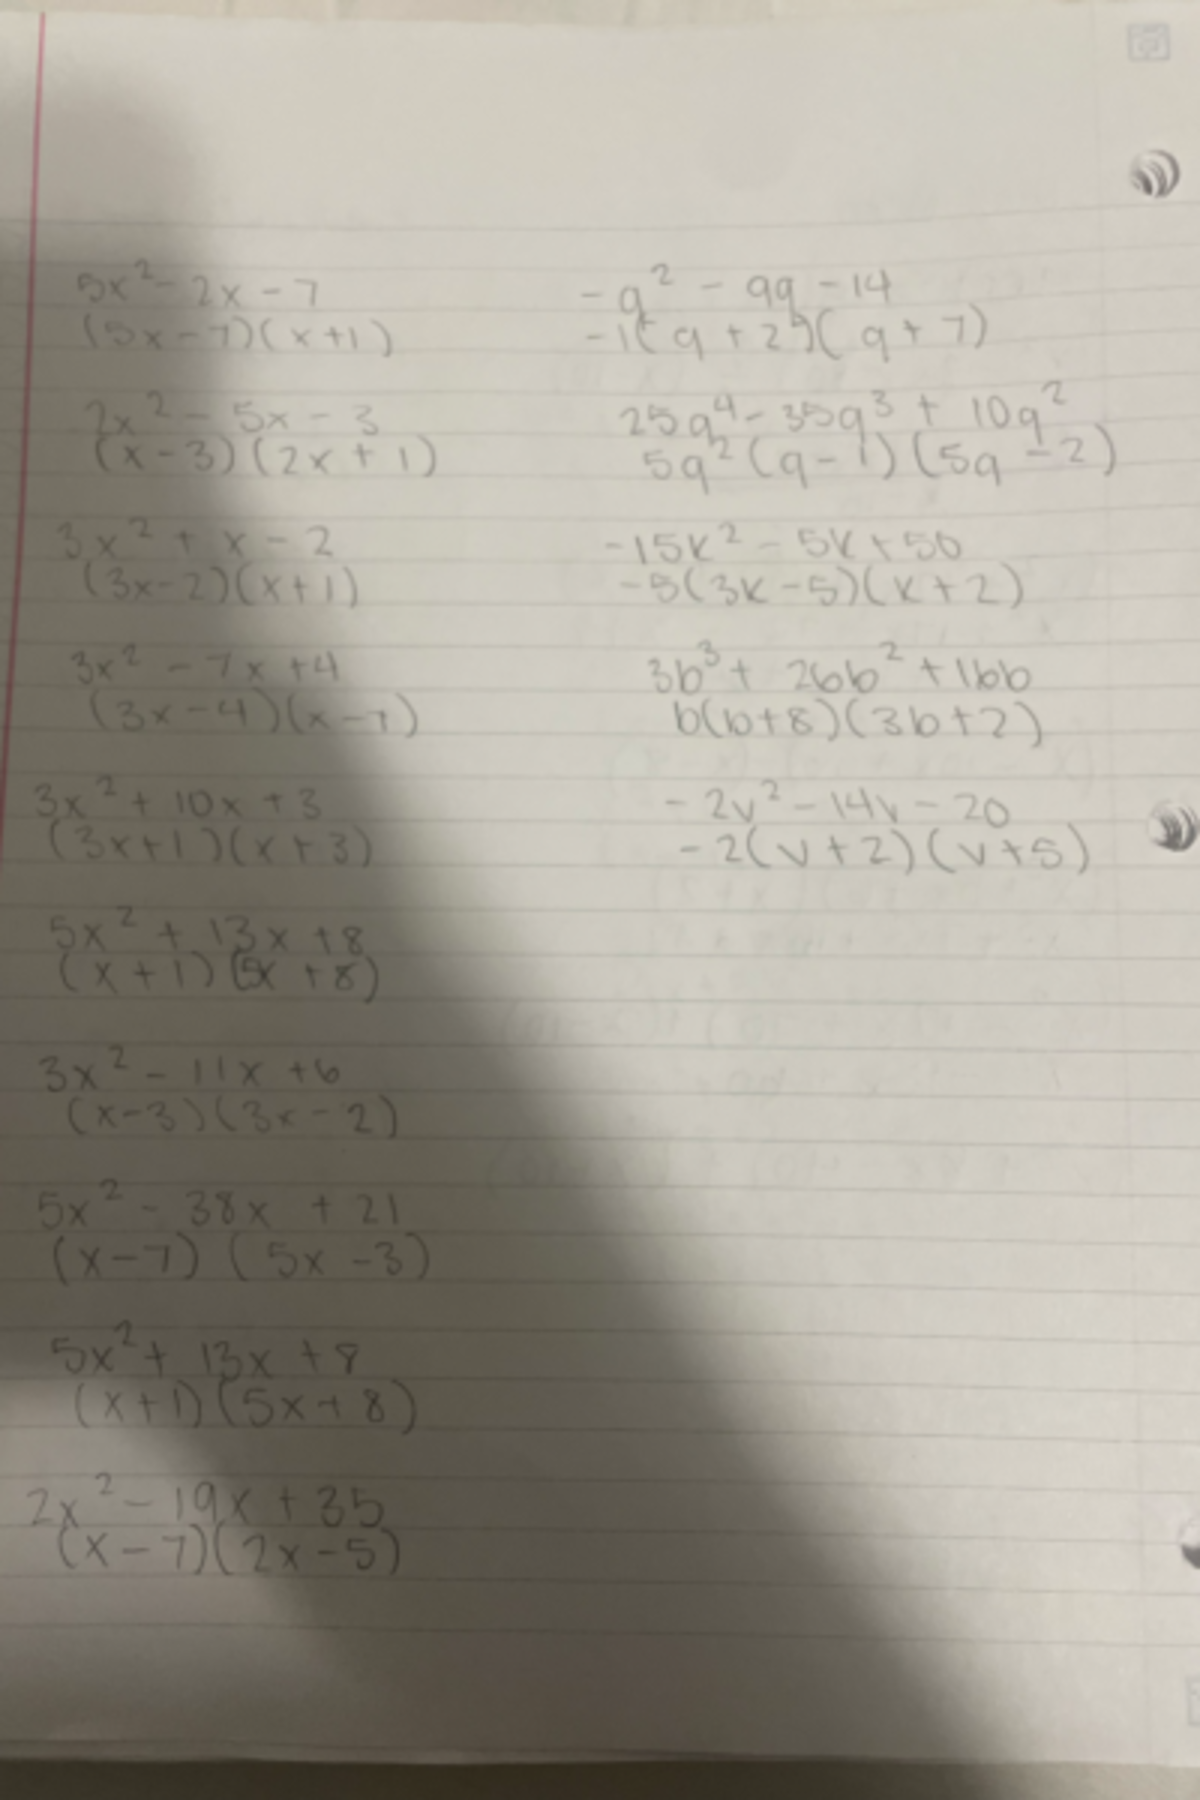 5x² - 2x - 7
(5x - 7)(x + 1)
2x² - 5x - 3
(x - 3)(2x + 1)
3x² + x - 2
(3x - 2)(x + 1)
3x² - 7x + 4
(3x - 4)(x - 1)
3x² + 10x + 3
(3x + 1)(x + 3)
5x² + 13x + 8
(x + 1)(5x + 8)
3x² - 11x + 6
(x - 3)(3x - 2)
5x² - 38x + 21
(x - 7)(5x - 3)
5x² + 13x + 8
(x + 1)(5x + 8)
2x² - 19x + 35
(x - 7)(2x - 5)
- q² - 9q - 14
- 1(q + 2)(q + 7)
25q⁴ - 35q³ + 10q²
5q²(q - 1)(5q - 2)
- 15k² - 5k + 50
- 5(3k - 5)(k + 2)
3b³ + 26b² + 16b
b(b + 8)(3b + 2)
- 2v² - 14v - 20
- 2(v + 2)(v + 5)